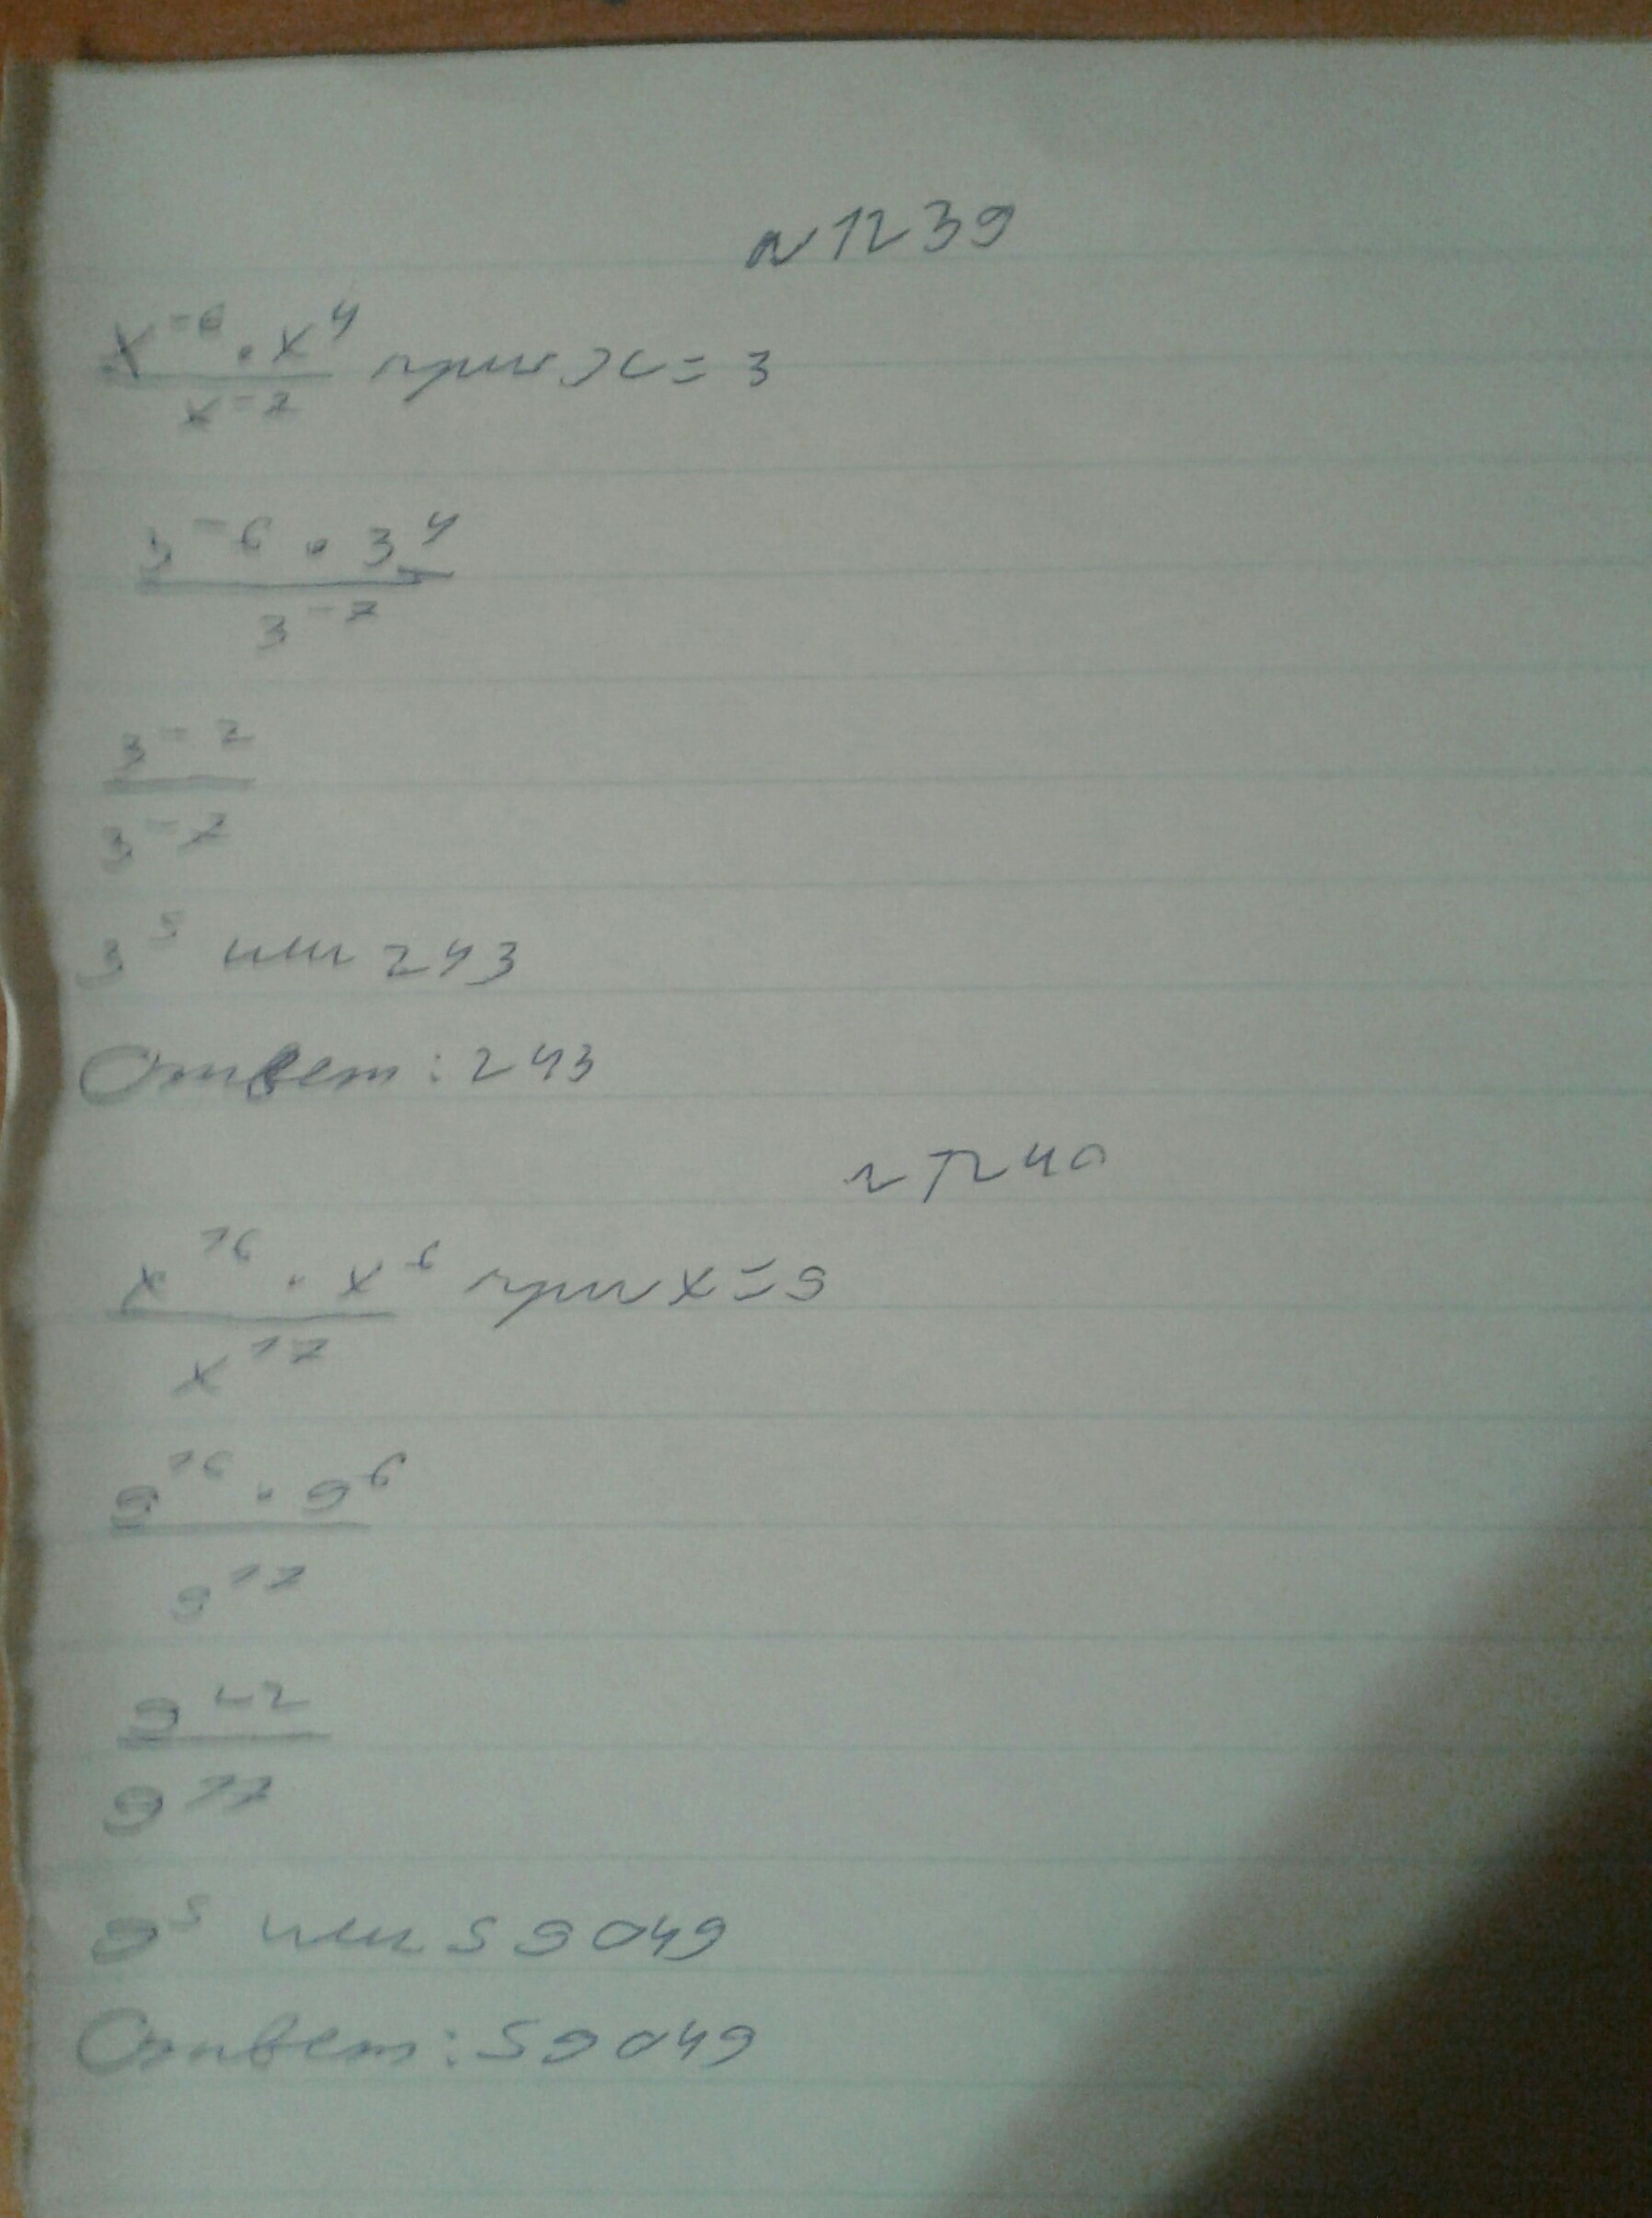 №1239
x⁻⁶ · x⁴ при x = 3
x⁻⁷
3⁻⁶ · 3⁴
3⁻⁷
3⁻²
3⁻⁷
3⁵ или 243
Ответ: 243
№1240
x¹⁶ · x⁶ при x = 9
x¹⁷
9¹⁶ · 9⁶
9¹⁷
9²²
9¹⁷
9⁵ или 59049
Ответ: 59049